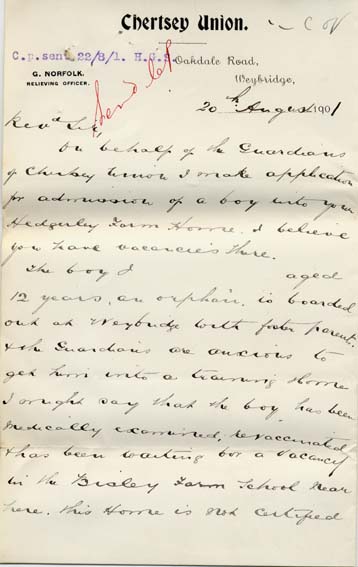 Chertsey Union.
C.p. sent 22/8/1. H.G.S.
Oakdale Road,
Weybridge,
G. NORFOLK.
RELIEVING OFFICER.
Send CP
20th August 1901
Revd Sir
On behalf of the Guardians
of Chertsey Union I make application
for admission of a boy into your
Hedgerley Farm Home. I believe
you have vacancies there.
The boy J aged
12 years, an orphan, is boarded
out at Weybridge with foster parents
& the Guardians are anxious to
get him into a training Home
I might say that the boy has been
medically examined, revaccinated
& has been waiting for a vacancy
in the Bisley Farm School near
here. This Home is not certified